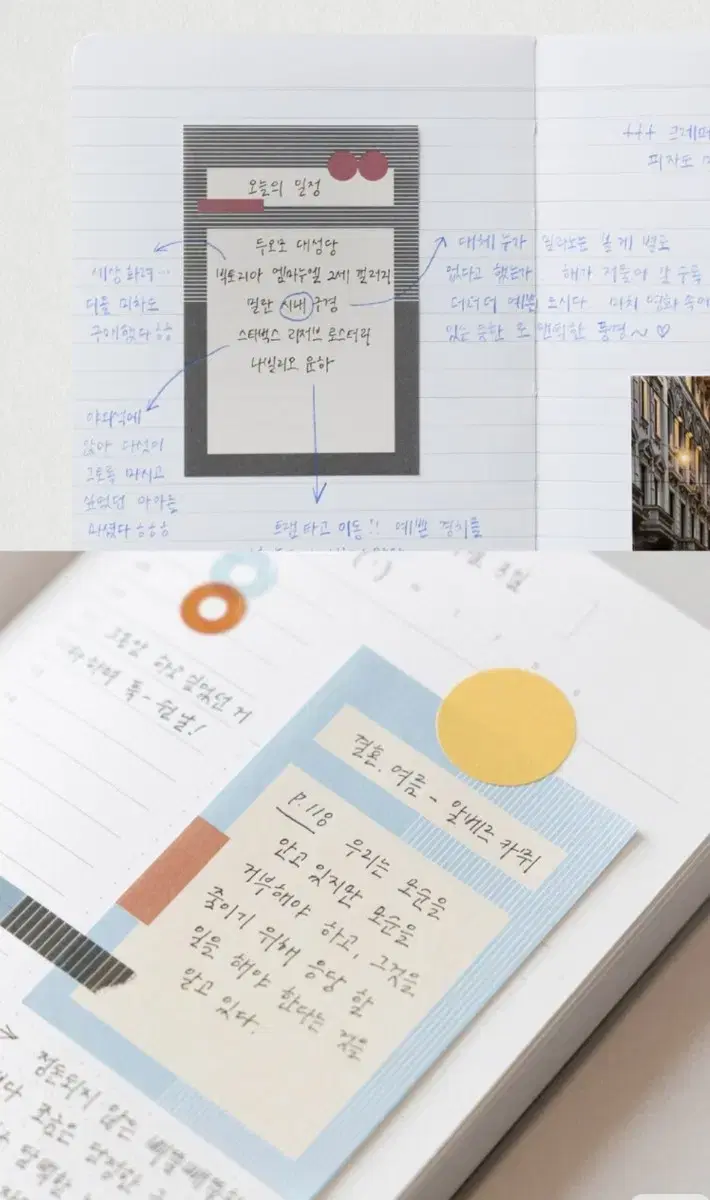 +++ 크레페
피자도
오늘의 일정
두오모 대성당
빅토리아 엠마누엘 2세 갤러리
밀란 시내 구경
스타벅스 리저브 로스터리
나빌리오 운하
세상 화려…
더를 미하는
구매했다 ㅎㅎ
대체 누가 밀라노는 볼 게 별로
없다고 했는가 해가 저물어 갈 수록
더더더 예쁜 도시다 마치 영화 속에
있는 듯한 로맨틱한 풍경~ ♡
야외석에
앉아 다섯이
그토록 마시고
싶었던 아아를
마셨다 ㅎㅎㅎ
트램 타고 이동!! 예쁜 경치를
그동안 하고 싶었던 거
다 하며 푹- 쉰 날!
결혼, 여름 - 알베르 카뮈
P.118 우리는 모순을
안고 있지만 모순을
거부해야 하고, 그것을
줄이기 위해 응당 할
일을 해야 한다는 것을
알고 있다.
정돈되지 않은
조금은